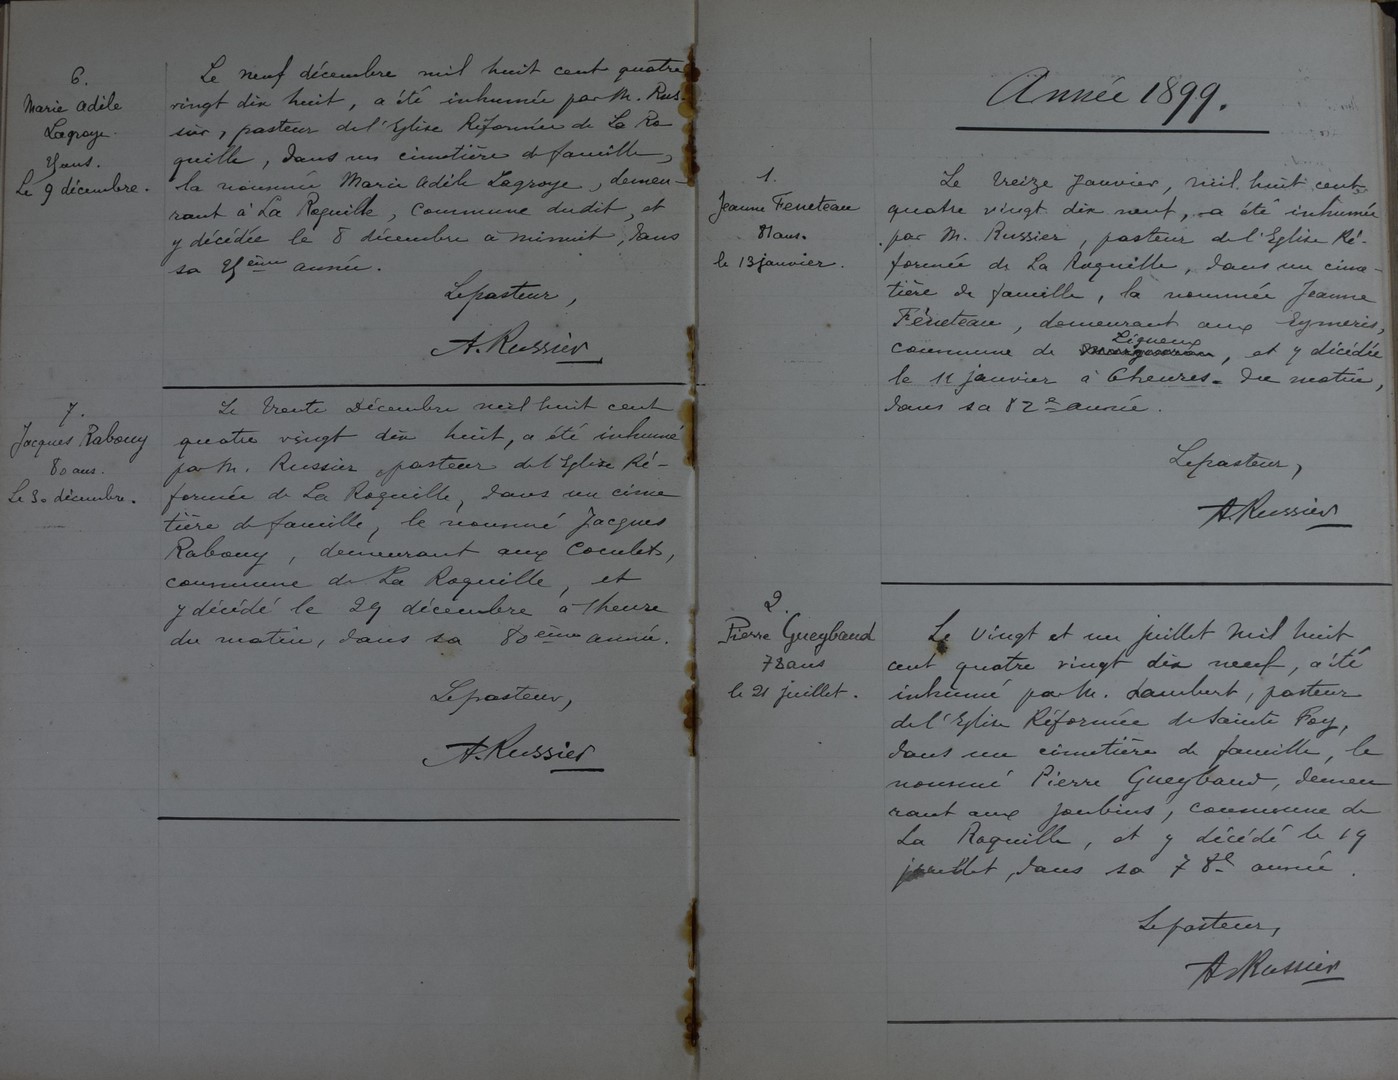 6.
Marie Adèle
Lagroye.
ans.
Le 9 décembre.
Le neuf décembre mil huit cent quatre
vingt dix huit, a été inhumée par M. Rus-
sier, pasteur de l'Eglise Réformée de La Ro
quille, dans un cimetière de famille,
la nommée Marie Adèle Lagroye, demeu-
rant à La Roquille, commune dudit, et
y décédée le 8 décembre à minuit, dans
sa ème année.
Le pasteur,
A. Russier
7.
Jacques Rabouy
80 ans.
Le 30 décembre.
Le trente décembre mil huit cent
quatre vingt dix huit, a été inhumé
par M. Russier pasteur de l'Eglise Ré-
formée de La Roquille, dans un cime
tière de famille, le nommé Jacques
Rabouy, demeurant aux Coculets,
commune de La Roquille, et
y décédé le 29 décembre à 1 heure
du matin, dans sa 80ème année.
Le pasteur,
A. Russier
Année 1899.
1.
Jeanne Feneteau
81 ans.
le 13 janvier.
Le treize janvier, mil huit cent
quatre vingt dix neuf, a été inhumée
par M. Russier, pasteur de l'Eglise Ré-
formée de La Roquille, dans un cime-
tière de famille, la nommée Jeanne
Féneteau, demeurant aux Eymeris,
commune de Ligueux, et y décédée
le 11 janvier à 6 heures du matin,
dans sa 82e année.
Le pasteur,
A. Russier
2.
Pierre Gueybaud
78 ans
le 21 juillet.
Le vingt et un juillet mil huit
cent quatre vingt dix neuf, a été
inhumé par M. Lambert, pasteur
de l'Eglise Réformée de Sainte Foy,
dans un cimetière de famille, le
nommé Pierre Gueybaud, demeu
rant aux Joubins, commune de
La Roquille, et y décédé le 19
juillet, dans sa 78e année.
Le pasteur,
A. Russier